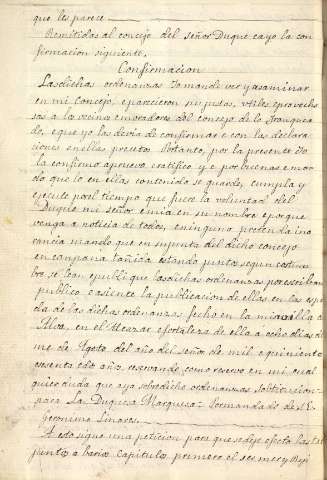 que les parece
Remitidos al concejo del señor Duque cayo la con
firmacion siguiente.
Confirmacion
Las dichas ordenanzas Yo mande ver y asaminar
en mi Concejo, e parecieron ser justas, utiles e provecho
sas a lo vecino e moradores del concejo de lo Franquea
do, e que yo las devia de confirmar e con las declara
ciones en ellas Portanto, por la presente Yo
la confirmo apruevo, certifico, y e por buenas e man
do que lo en ellas contenido se guarde, cumpla y
execute por el tiempo que fuere la voluntad del
Duque mi señor e mia en su nombre e porque
venga a noticia de todos, e ninguno pretenda ino
rancia mando que en su junta del dicho concejo
en campana tañida estando juntos segun costum
bre, se lean e publique las dichas ordenanzas por escribano
publico e asiente la publicacion de ellas en las
da de las dichas ordenanzas fecho en la mia villa de
Alva, en el Alcazar e fortaleza de ella a ocho dias del
me de Agoto del año del Señor de mil e quiniento
e sesenta e do años, reservando como reservo en mi cual
quier duda que aya sobre dicho ordenanzas
para La Duquesa Marquesa = Por mandado de su E.
Geronimo Linares.
A esto sigue una peticion para que se dege efecto las
junto a bario Capitulo, primero el ser mer y